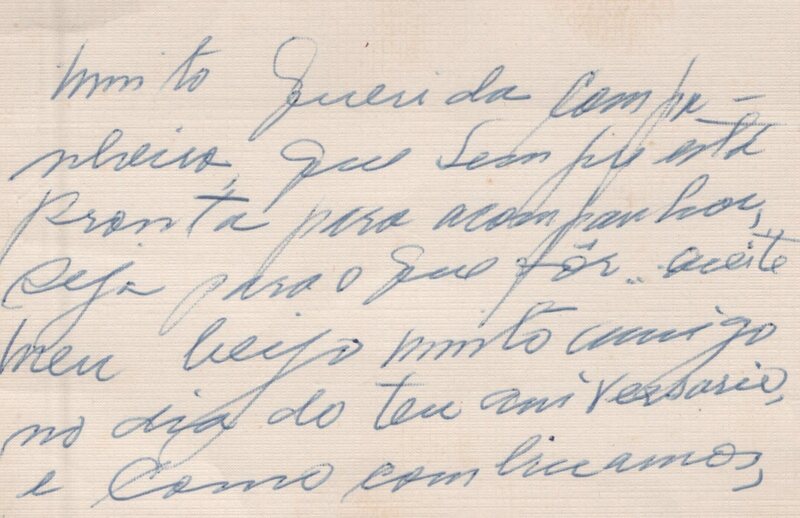 Muito Querida compa-
nheira, que sempre está
pronta para acompanhar,
seja para o que fôr.. aceite
meu beijo muito amigo
no dia do teu aniversario,
e como combinamos,